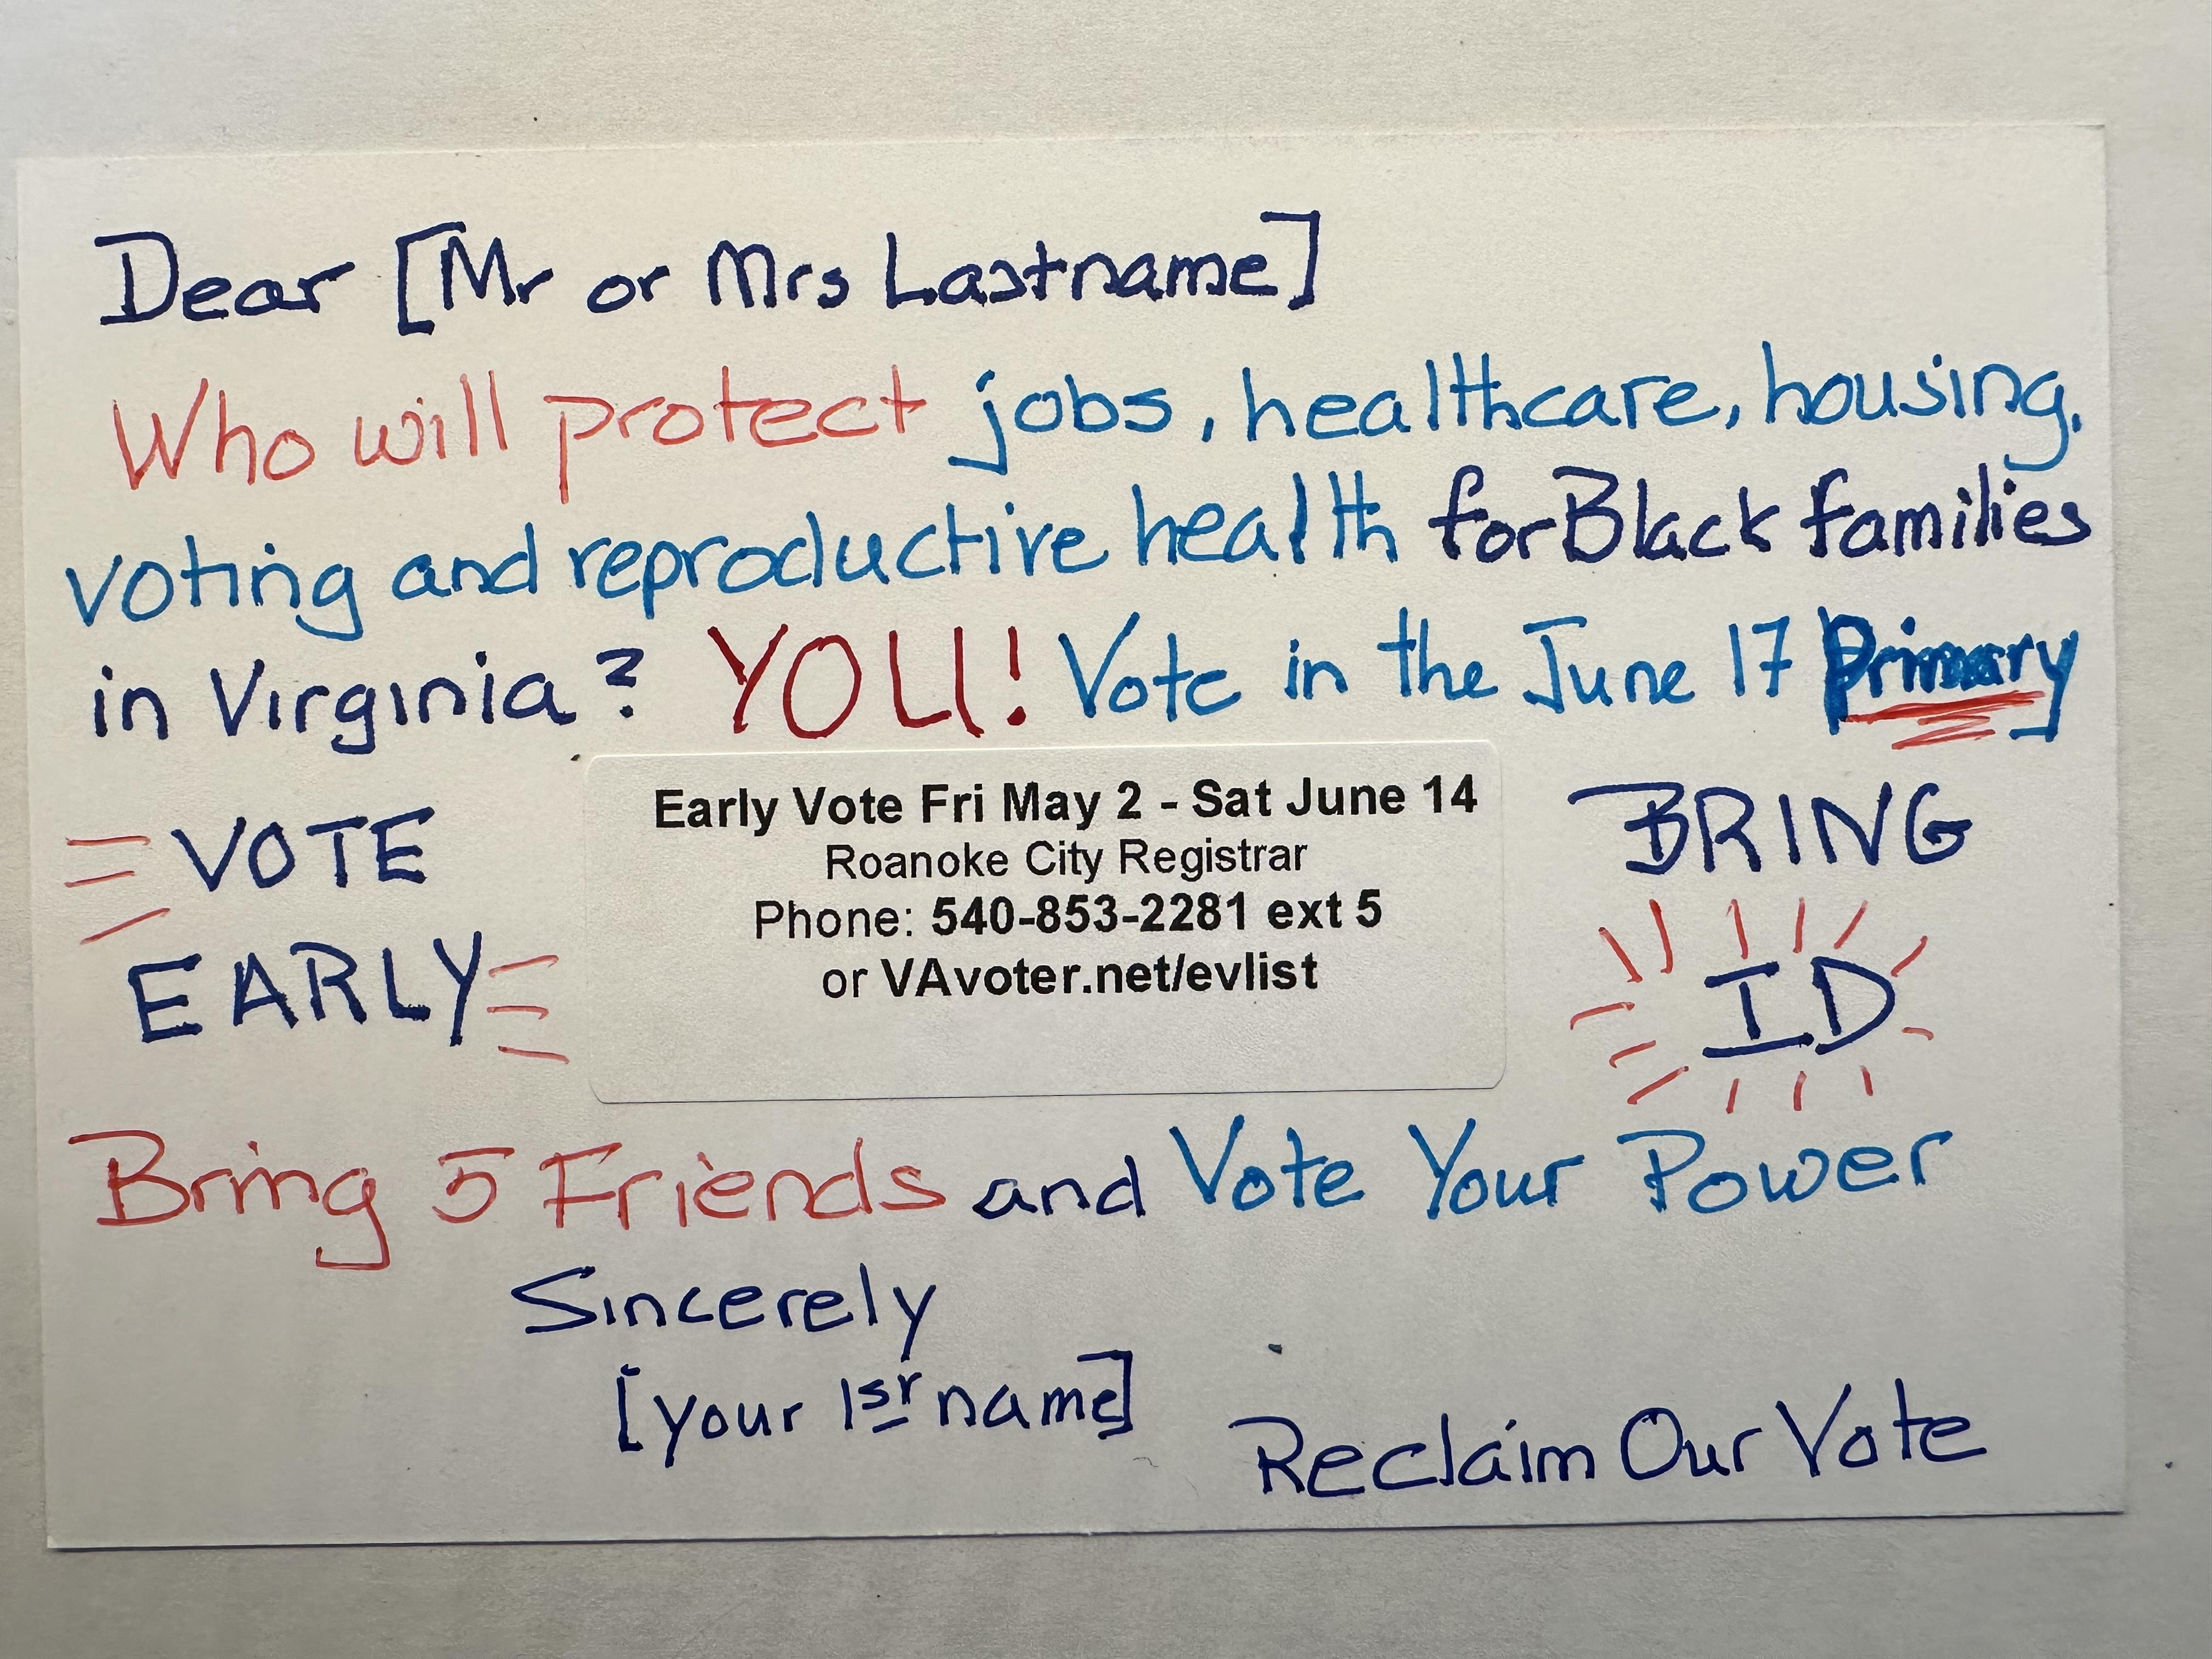 Dear [Mr or Mrs Lastname]
Who will protect jobs, healthcare, housing,
voting and reproductive health for Black families
in Virginia? YOU! Vote in the June 17 Primary
VOTE
EARLY
Early Vote Fri May 2 - Sat June 14
Roanoke City Registrar
Phone: 540-853-2281 ext 5
or VAvoter.net/evlist
BRING
ID
Bring 5 Friends and Vote Your Power
Sincerely
[your 1st name]
Reclaim Our Vote